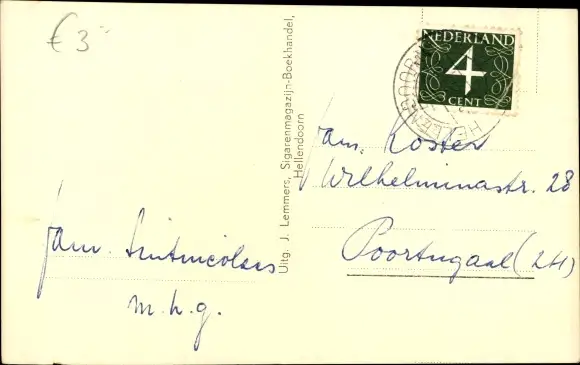 € 3,-
NEDERLAND
4
CENT
HELLENDOORN
Fam. Koster
Wilhelminastr. 28
Poortugaal (ZH)
Uitg. J. Lemmers, Sigarenmagazijn-Boekhandel,
Hellendoorn
Fam. Sintnicolaas
m.h.g.